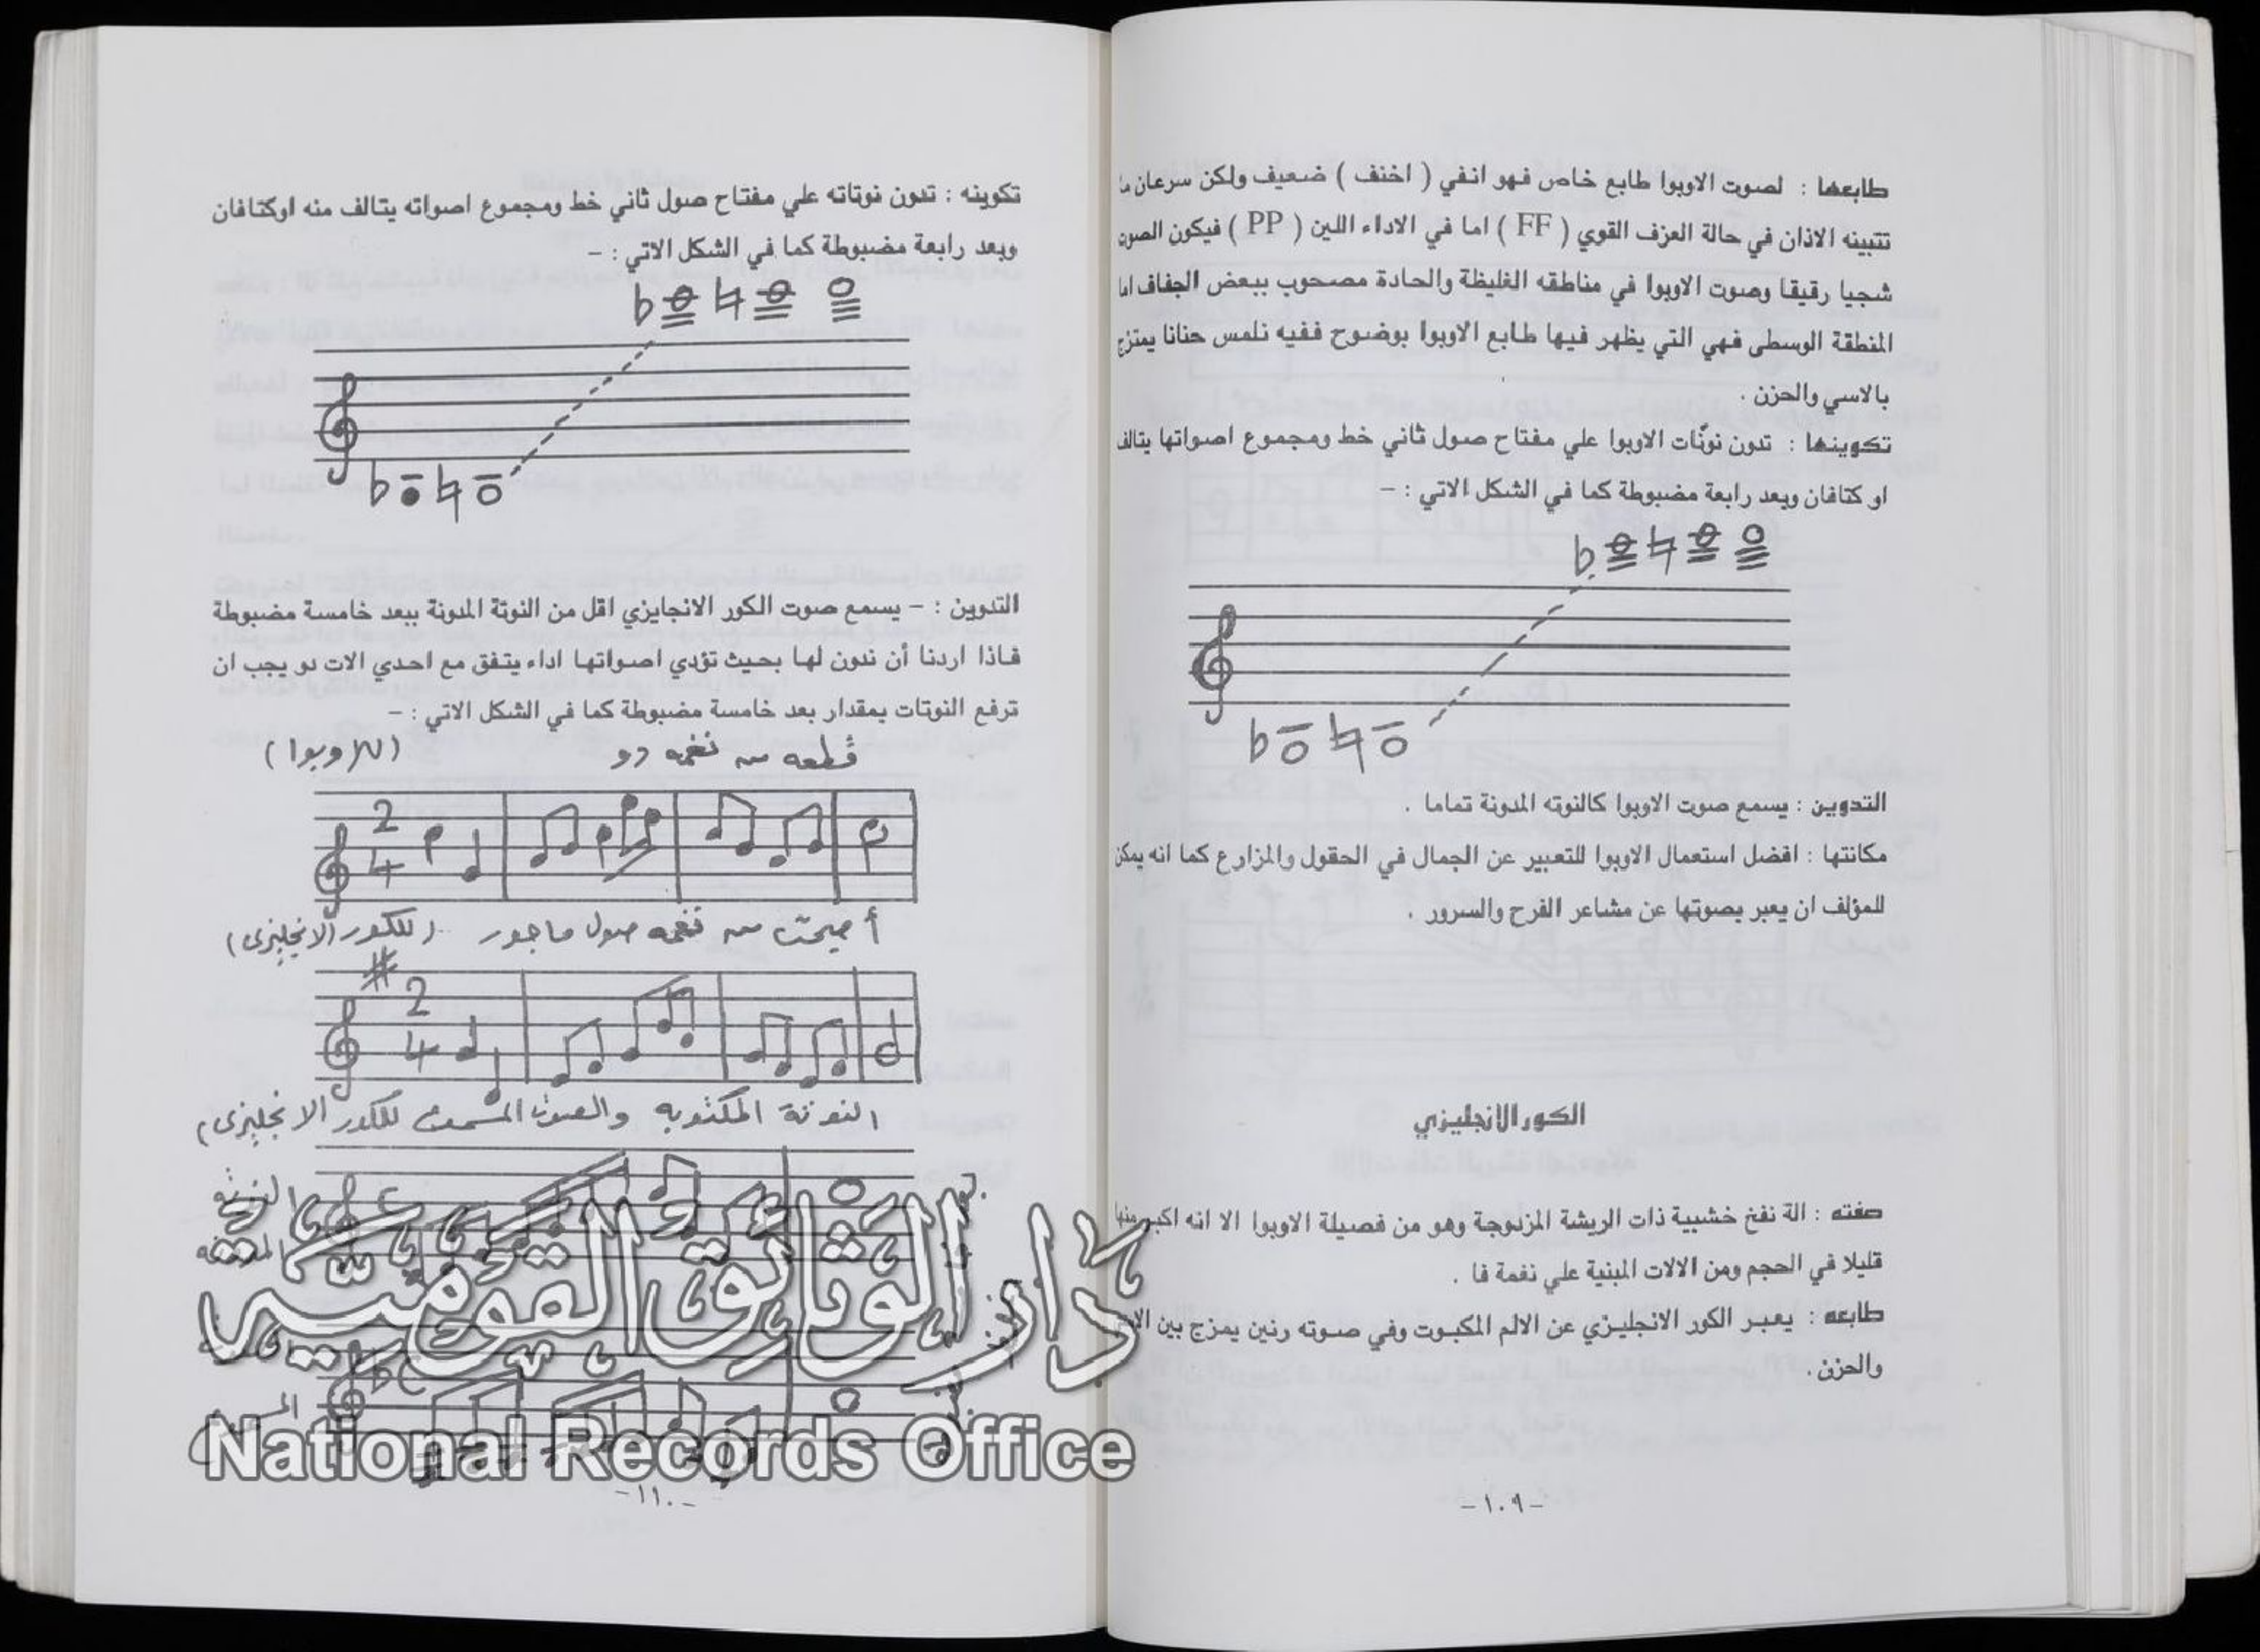 طابعها : لصوت الاوبوا طابع خاص فهو انفي ( اخنف ) ضعيف ولكن سرعان ما
تتبينه الاذان في حالة العزف القوي ( FF ) اما في الاداء اللين ( PP ) فيكون الصوت
شجيا رقيقا وصوت الاوبوا في مناطقه الغليظة والحادة مصحوب ببعض الجفاف اما
المنطقة الوسطى فهي التي يظهر فيها طابع الاوبوا بوضوح ففيه نلمس حنانا يمتزج
بالاسي والحزن .
تكوينها : تدون نوتات الاوبوا علي مفتاح صول ثاني خط ومجموع اصواتها يتالف
او كتافان وبعد رابعة مضبوطة كما في الشكل الاتي : –
التدوين : يسمع صوت الاوبوا كالنوته المدونة تماما .
مكانتها : افضل استعمال الاوبوا للتعبير عن الجمال في الحقول والمزارع كما انه يمكن
للمؤلف ان يعبر بصوتها عن مشاعر الفرح والسرور .
الكور الانجليزي
صفته : الة نفخ خشبية ذات الريشة المزدوجة وهو من فصيلة الاوبوا الا انه اكبر منها
قليلا في الحجم ومن الالات المبنية علي نغمة فا .
طابعه : يعبر الكور الانجليزي عن الالم المكبوت وفي صوته رنين يمزج بين
والحزن .
– ١٠٩ –
تكوينه : تدون نوتاته علي مفتاح صول ثاني خط ومجموع اصواته يتالف منه اوكتافان
وبعد رابعة مضبوطة كما في الشكل الاتي : –
التدوين : – يسمع صوت الكور الانجايزي اقل من النوتة المدونة ببعد خامسة مضبوطة
فاذا اردنا أن ندون لها بحيث تؤدي اصواتها اداء يتفق مع احدي الات دو يجب ان
ترفع النوتات بمقدار بعد خامسة مضبوطة كما في الشكل الاتي : –
قطعه من نغمه دو (للاوبوا)
2
4
أصبحت من نغمه صول ماجور (للكور الانجليزى)
2
4
النوتة المكتوبه والصوت المسموع للكور الانجليزى)
النوته
دار الوثائق القومية
National Records Office
– ١١٠ –